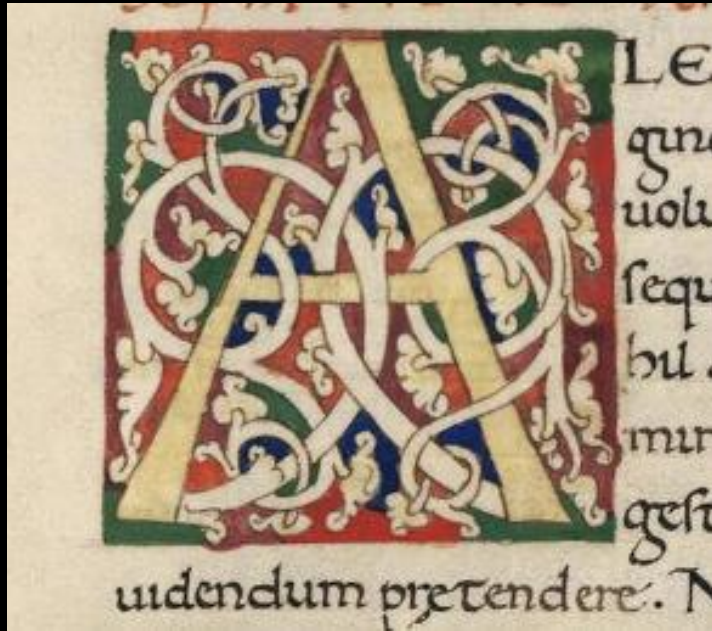 A LE
gin
uolu
sequ
bil
min
gest
uidendum prętendere. N